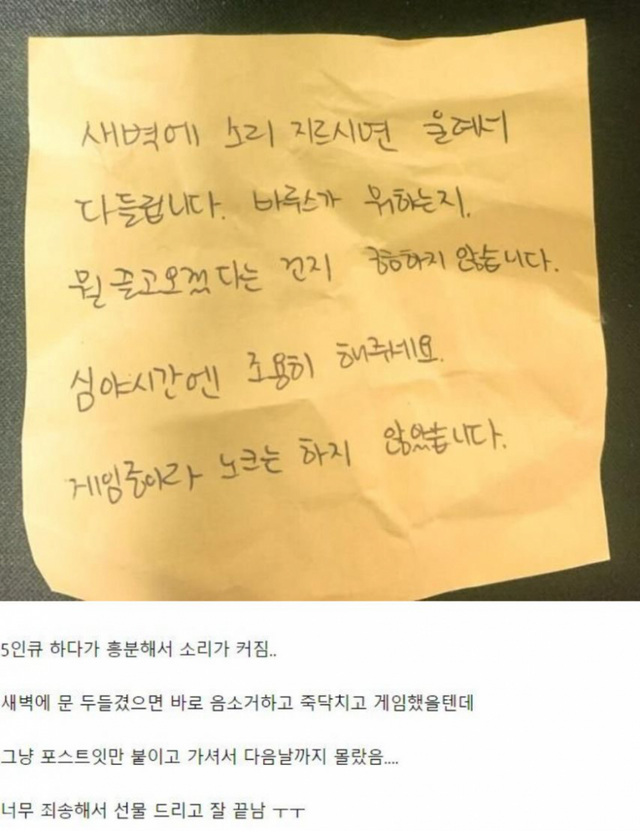 새벽에 소리 지르시면 울려서
다들립니다. 바루스가 뭐하는지,
뭘 끌고오겠다는 건지 궁금하지 않습니다.
심야시간엔 조용히 해주세요.
게임중이라 노크는 하지 않았습니다.
5인큐 하다가 흥분해서 소리가 커짐..
새벽에 문 두들겼으면 바로 음소거하고 죽닥치고 게임했을텐데
그냥 포스트잇만 붙이고 가셔서 다음날까지 몰랐음....
너무 죄송해서 선물 드리고 잘 끝남 ㅜㅜ